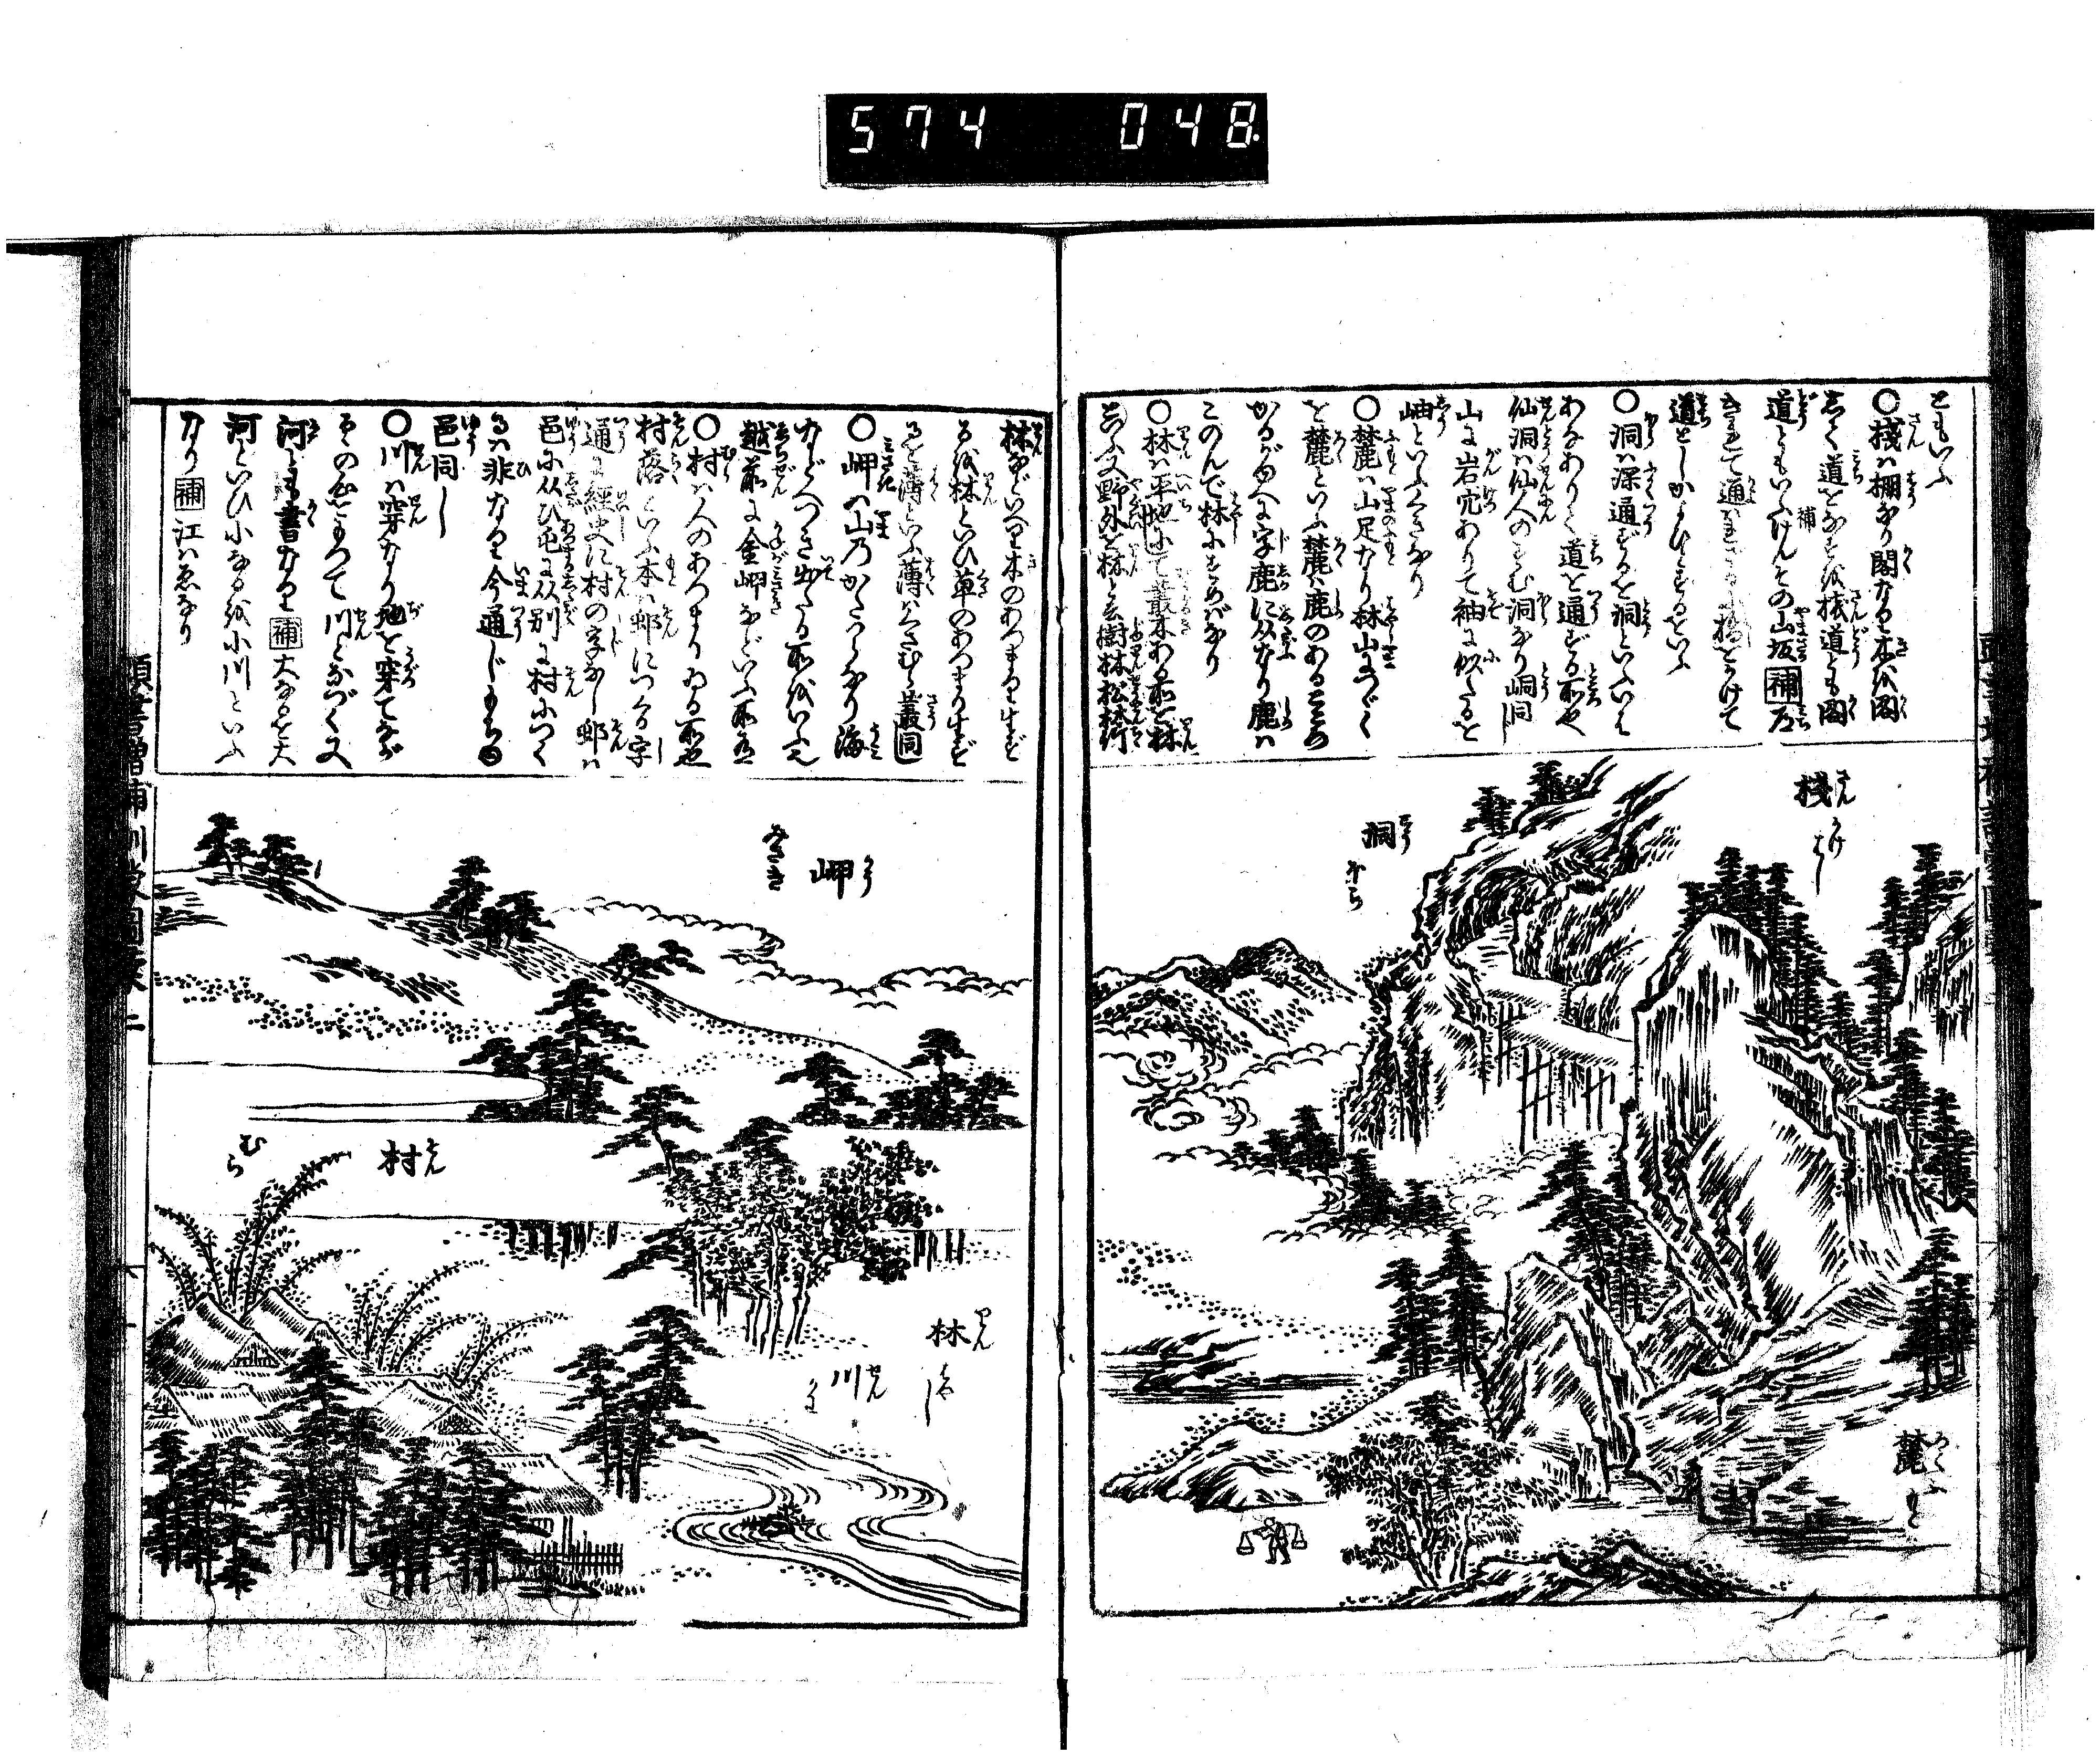 574 048
ともいふ
○棧ハ棚なり閣なり木を閣
しく道をなすを棧道とも閣
道ともいふけんその山坂補石
きれて通れざるに橋をかけて
道とし
○洞ハ深通ずるを洞といふいは
あなありて道を通ずる所也
仙洞ハ仙人のすむ洞なり峒同
山に岩穴ありて袖に似たるを
岫といふべきなり
○麓ハ山足なり林山につゞく
を麓といふ麓ハ鹿のあるところ
かるがゆへに字鹿に从なり鹿ハ
このんで林にすめばなり
○林ハ平地にて叢木ある所を林
といふ又野外を林と云樹林松林竹
林などいへり木のあつまり生ず
るを林といひ草のあつまり生ず
るを薄といふ薄ハくさむら叢同
○岬ハ山のかたはらなり海
などへつき出たる所をいふ
越前に金岬などいふ所有
○村ハ人のあつまりゐる所也
村落といふ本ハ邨につくる字
通に經史に村の字なし邨ハ
邑に从ひ屯に从別に村につく
るハ非なり今通じもちゆ
邑同じ
○川ハ穿なり地を穿てなが
るゝの心をもつて川となづく又
河とも書なり補大なるを大
河といひ小なるを小川といふ
なり補江ハゑなり
棧 さん かけはし
洞 とう ほら
麓 ろく ふもと
岬 かう みさき
村 そん むら
林 りん はやし
川 せん かは
頭書増補訓蒙圖彙 二